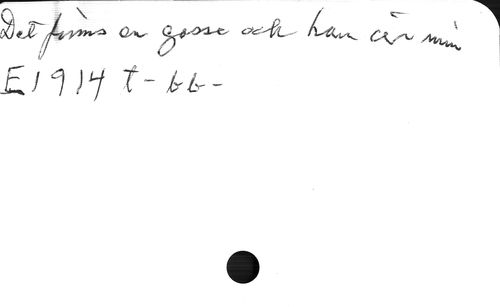 Det finns en gosse och han är min
E1914 t-bb-